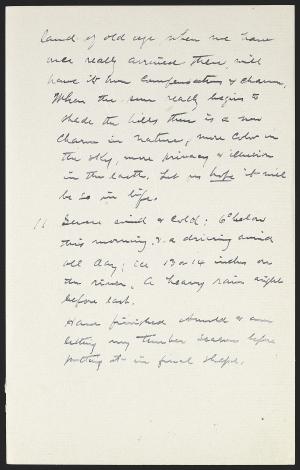 land of old age when we have
once really arrived there, will
have its own compensations & charm.
When the sun really begins to
shade the hills there is a new
charm in nature, more color in
the sky, more privacy & illusion
in the earth. Let us hope it will
be so in life.
11 Severe wind & cold; 6° below
this morning, & a driving wind
all day; ice 13 or 14 inches on
the river. A heavy rain night
before last.
Have finished Arnold & am
letting my timber season before
putting it in final shape.